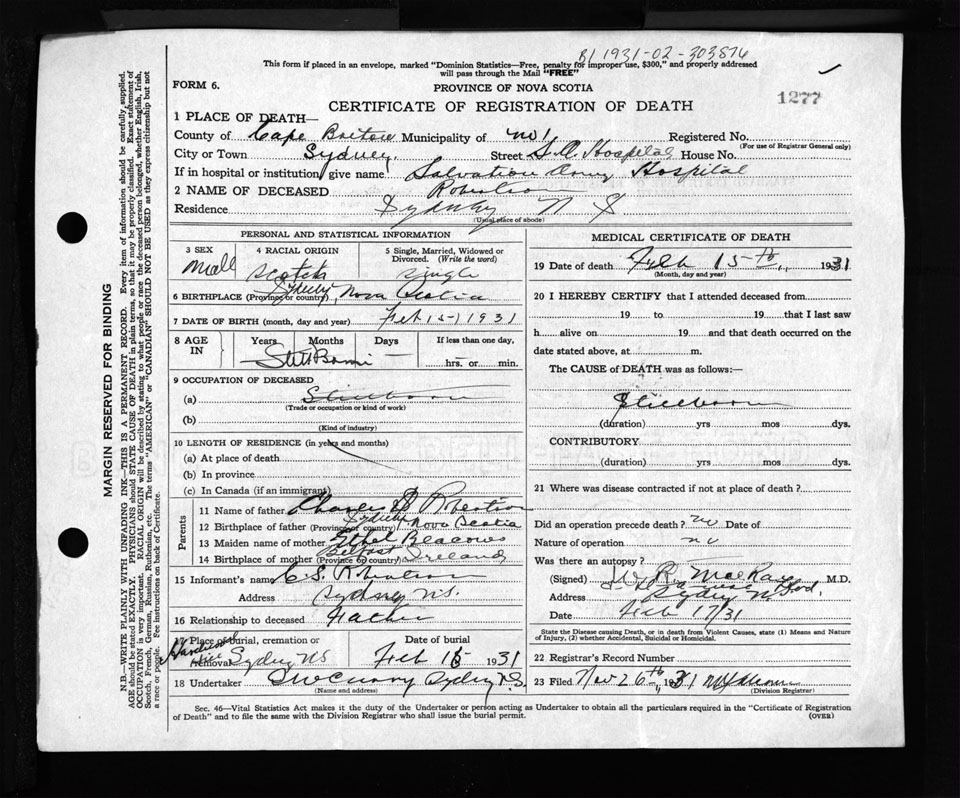 B1 1931-02-303876
This form if placed in an envelope, marked "Dominion Statistics—Free, penalty for improper use, $300," and properly addressed
will pass through the Mail "FREE"
FORM 6.
PROVINCE OF NOVA SCOTIA
1277
CERTIFICATE OF REGISTRATION OF DEATH
1 PLACE OF DEATH—
County of Cape Breton Municipality of No 1 Registered No.
(For use of Registrar General only)
City or Town Sydney. Street S. A. Hospital House No.
If in hospital or institution, give name Salvation Army Hospital
2 NAME OF DECEASED Robertson
Residence Sydney N S
(Usual place of abode)
PERSONAL AND STATISTICAL INFORMATION
3 SEX 4 RACIAL ORIGIN 5 Single, Married, Widowed or
Divorced. (Write the word)
Scotch Single
6 BIRTHPLACE (Province or country) Sydney Nova Scotia
7 DATE OF BIRTH (month, day and year) Feb 15-1931
8 AGE IN Years Months Days If less than one day,
Still Born — hrs. or min.
9 OCCUPATION OF DECEASED
(a) Stillborn
(Trade or occupation or kind of work)
(b)
(Kind of industry)
10 LENGTH OF RESIDENCE (in years and months)
(a) At place of death
(b) In province
(c) In Canada (if an immigrant)
Parents
11 Name of father Charles S Robertson
12 Birthplace of father (Province or country) Sydney Nova Scotia
13 Maiden name of mother Ethel
14 Birthplace of mother (Province or country) Belfast Ireland
15 Informant's name C. S. Robertson
Address Sydney N.S.
16 Relationship to deceased Father
17 Place of burial, cremation or Date of burial
removal Hardwood Hill Sydney NS Feb 1931
18 Undertaker Sydney N.S.
(Name and address)
MEDICAL CERTIFICATE OF DEATH
19 Date of death Feb 15th, 1931
(Month, day and year)
20 I HEREBY CERTIFY that I attended deceased from
19 to 19 that I last saw
h alive on 19 and that death occurred on
date stated above, at m.
The CAUSE of DEATH was as follows:—
Stillborn
(duration) yrs mos dys.
CONTRIBUTORY
(duration) yrs mos dys.
21 Where was disease contracted if not at place of death?
Did an operation precede death? no Date of
Nature of operation no
Was there an autopsy?
(Signed) W. R. MacRae M.D.
Address Sydney
Date Feb 17/31
State the Disease causing Death, or in death from Violent Causes, state (1) Means and Nature
of Injury, (2) whether Accidental, Suicidal or Homicidal.
22 Registrar's Record Number
23 Filed Nov 26th 31
(Division Registrar)
Sec. 46—Vital Statistics Act makes it the duty of the Undertaker or person acting as Undertaker to obtain all the particulars required in the "Certificate of Registration
of Death" and to file the same with the Division Registrar who shall issue the burial permit. (OVER)
MARGIN RESERVED FOR BINDING
N.B.—WRITE PLAINLY WITH UNFADING INK—THIS IS A PERMANENT RECORD. Every item of information should be carefully supplied.
AGE should be stated EXACTLY. PHYSICIANS should STATE CAUSE OF DEATH in plain terms, so that it may be properly classified. Exact statement of
OCCUPATION is very important. RACIAL ORIGIN will be described by stating to what people or race the deceased person belonged, whether English, Irish,
Scotch, French, German, Russian, Ruthenian, etc. The terms "AMERICAN" or "CANADIAN" SHOULD NOT BE USED as they express citizenship but not
a race or people. Fee instructions on back of Certificate.